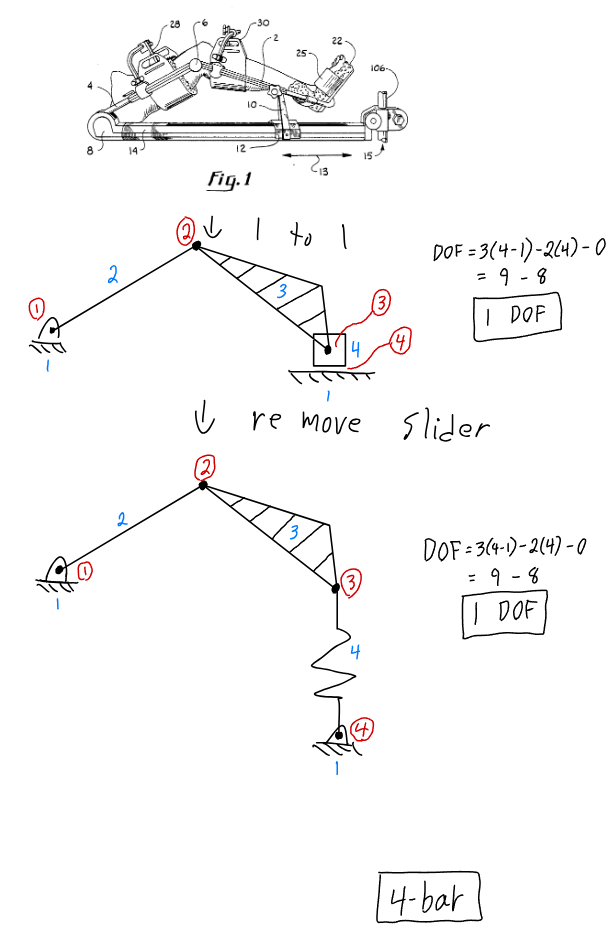 28
6
30
2
22
25
106
4
10
8
14
12
13
15
Fig.1
↓ 1 to 1
②
2
3
①
1
③
4
④
1
DOF = 3(4-1)-2(4)-0
= 9 - 8
1 DOF
↓ remove slider
②
2
3
①
1
③
4
④
1
DOF = 3(4-1)-2(4)-0
= 9 - 8
1 DOF
4-bar